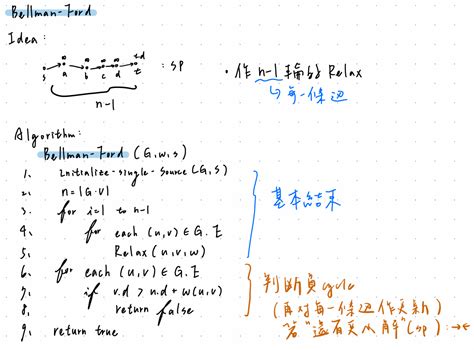 Bellman-Ford
Idea:
∞ ∞ ∞ ∞ t.d
s a b c d t : SP
n-1
• 作 n-1 輪的 Relax
↳ 每一條邊
Algorithm:
Bellman-Ford (G,w,s)
1. Initialize-single-source(G,s)
2. n=|G.V|
3. for i=1 to n-1
4. for each (u,v)∈G.E
5. Relax(u,v,w)
6. for each (u,v)∈G.E
7. if v.d > u.d + w(u,v)
8. return false
9. return true
基本結束
判斷負cycle
(再對每一條邊作更新)
"若"還有更小解"(sp) : →←